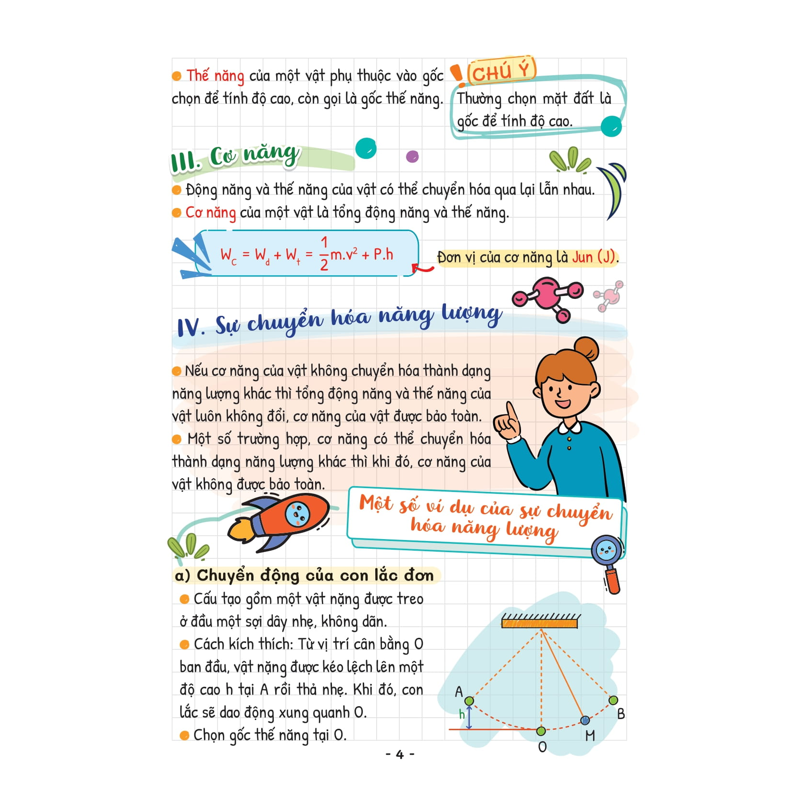 Thế năng của một vật phụ thuộc vào gốc
chọn để tính độ cao, còn gọi là gốc thế năng.
CHÚ Ý
Thường chọn mặt đất là
gốc để tính độ cao.
III. Cơ năng
Động năng và thế năng của vật có thể chuyển hóa qua lại lẫn nhau.
Cơ năng của một vật là tổng động năng và thế năng.
W_C = W_d + W_t = 1/2 m.v² + P.h
Đơn vị của cơ năng là Jun (J).
IV. Sự chuyển hóa năng lượng
Nếu cơ năng của vật không chuyển hóa thành dạng
năng lượng khác thì tổng động năng và thế năng của
vật luôn không đổi, cơ năng của vật được bảo toàn.
Một số trường hợp, cơ năng có thể chuyển hóa
thành dạng năng lượng khác thì khi đó, cơ năng của
vật không được bảo toàn.
Một số ví dụ của sự chuyển
hóa năng lượng
a) Chuyển động của con lắc đơn
Cấu tạo gồm một vật nặng được treo
ở đầu một sợi dây nhẹ, không dãn.
Cách kích thích: Từ vị trí cân bằng O
ban đầu, vật nặng được kéo lệch lên một
độ cao h tại A rồi thả nhẹ. Khi đó, con
lắc sẽ dao động xung quanh O.
Chọn gốc thế năng tại O.
A
h
O
M
B
- 4 -